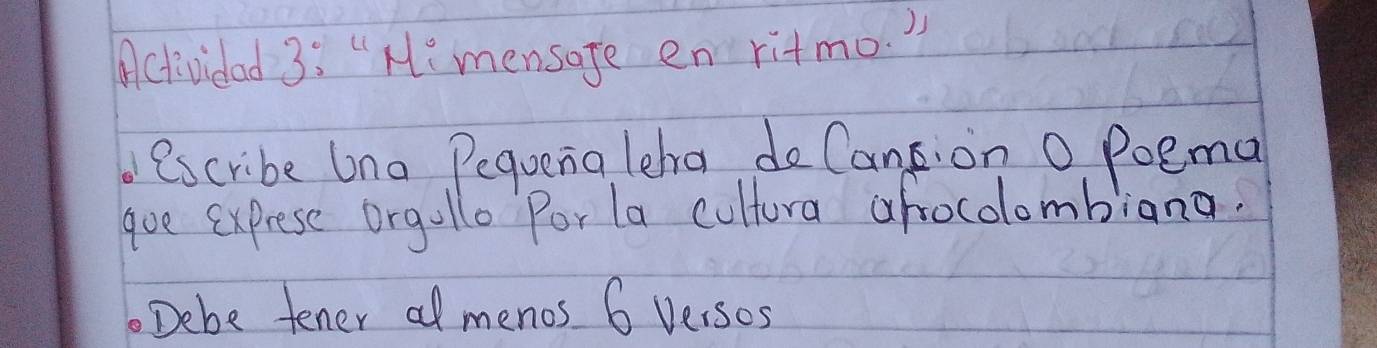 Actividad 3: "Mi mensaje en ritmo."
• Escribe Una Pequeña letra de Cansión O Poema
que Exprese Orgullo Por la cultura afrocolombiana.
• Debe tener al menos 6 Versos